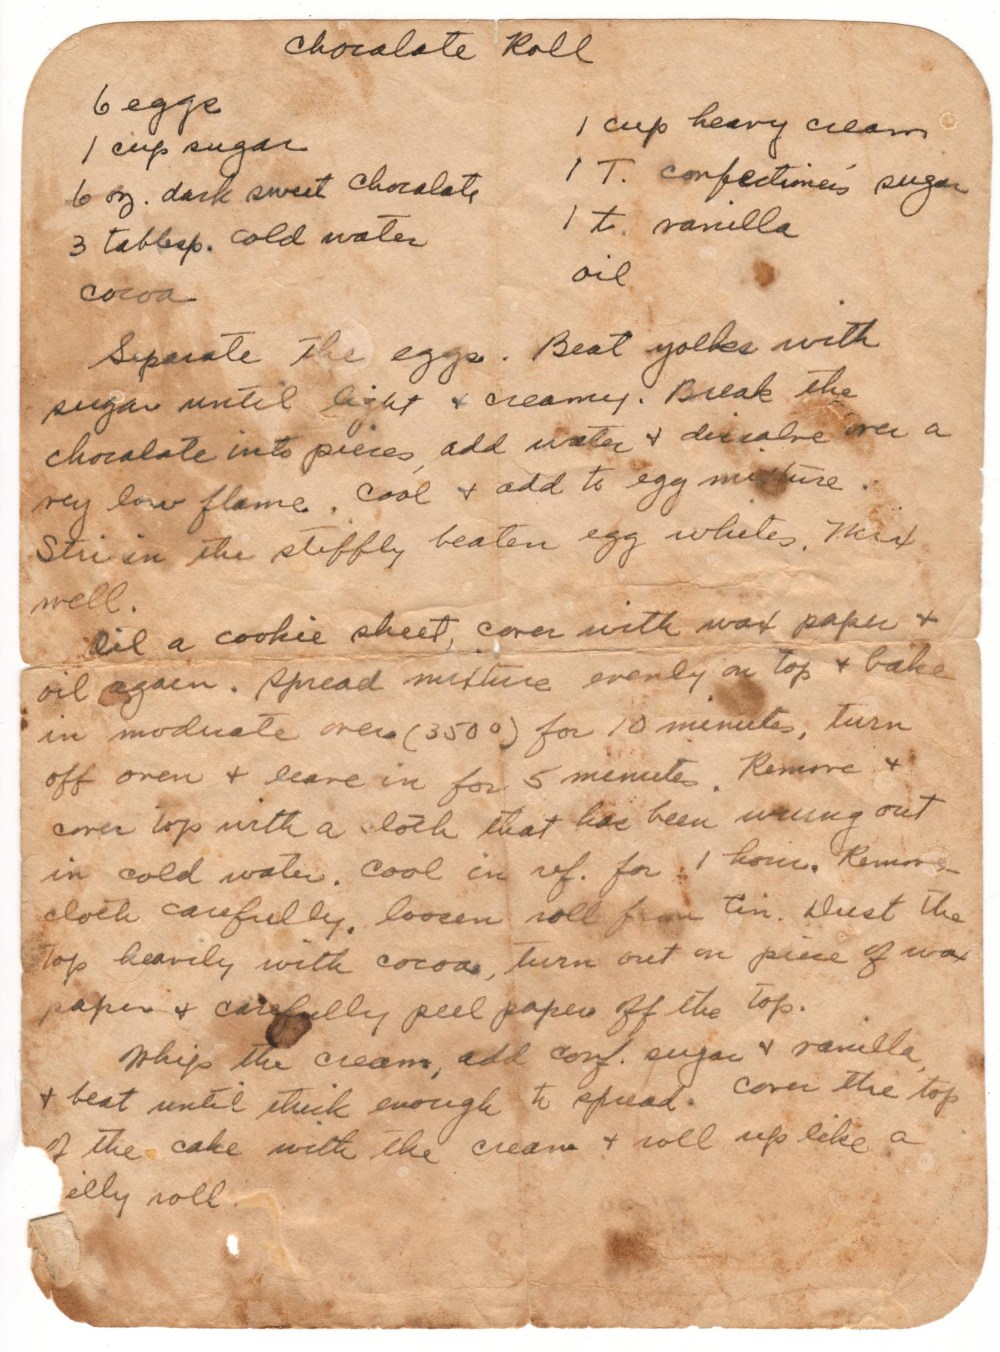 Chocolate Roll
6 eggs
1 cup sugar
6 oz. dark sweet chocolate
3 tablesp. cold water
cocoa
1 cup heavy cream
1 T. confectioner's sugar
1 t. vanilla
oil
Separate the eggs. Beat yolks with
sugar until light & creamy. Break the
chocolate into pieces, add water & dissolve over a
very low flame. Cool & add to egg mixture.
Stir in the stiffly beaten egg whites. Mix
well.
Oil a cookie sheet, cover with wax paper &
oil again. Spread mixture evenly on top & bake
in moderate oven (350°) for 10 minutes, turn
off oven & leave in for 5 minutes. Remove &
cover top with a cloth that has been wrung out
in cold water. Cool in ref. for 1 hour. Remove
cloth carefully, loosen roll from tin. Dust the
top heavily with cocoa, turn out on piece of wax
paper & carefully peel paper off the top.
Whip the cream, add conf. sugar & vanilla
& beat until thick enough to spread. Cover the top
of the cake with the cream & roll up like a
elly roll.